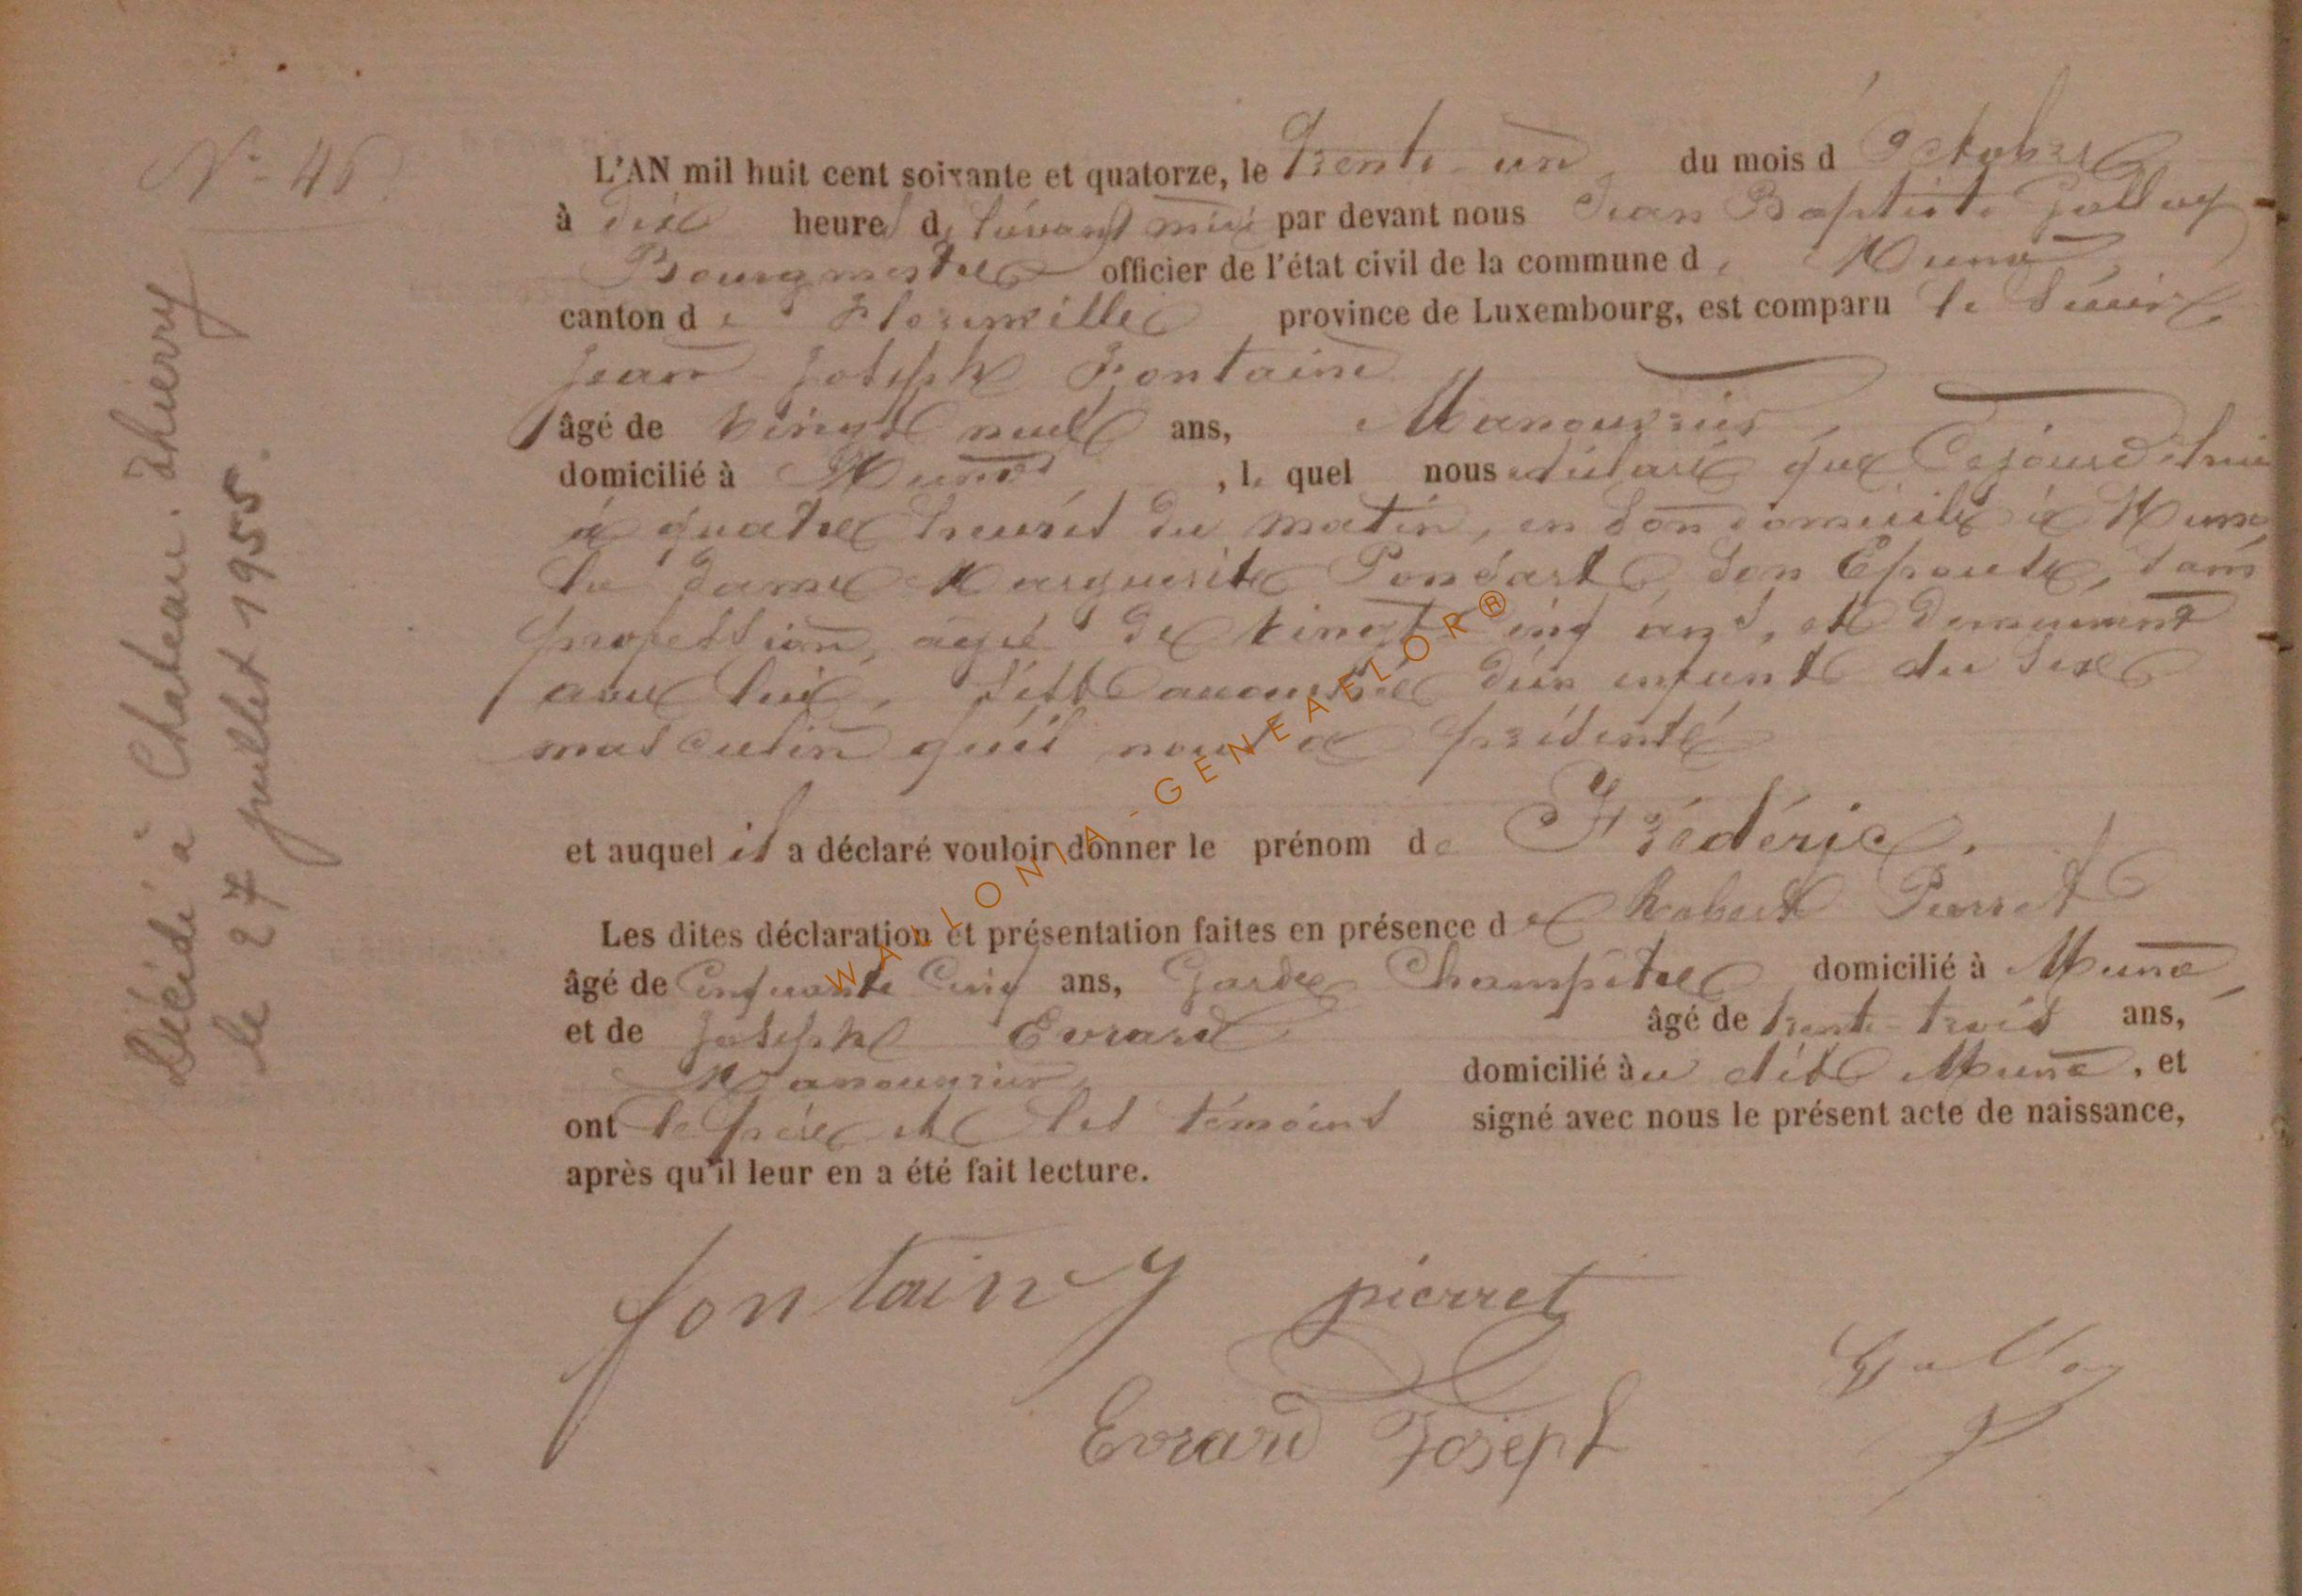 N° 46.
L'AN mil huit cent soixante et quatorze, le Trente-un du mois d'Octobre
à dix heures d avant midi par devant nous Jean Baptiste Galloy
Bourgmestre officier de l'état civil de la commune de Muno
canton de Florenville province de Luxembourg, est comparu le Sieur
Jean Joseph Fontaine
âgé de vingt neuf ans, Manouvrier
domicilié à Muno, lequel nous a déclaré que Cejourd'hui
à quatre heures du matin, en son domicile à Muno,
la dame Marguerite Ponsart, son Epouse, sans
profession, agée de vingt cinq ans, et demeurant
avec lui, s'est accouchée d'un enfant du sexe
masculin qu'il nous a présenté
et auquel il a déclaré vouloir donner le prénom de Frédéric.
Les dites déclaration et présentation faites en présence de Robert Pierret
âgé de Cinquante Cinq ans, Garde Champêtre domicilié à Muno,
et de Joseph Evrard âgé de trente-trois ans,
Manouvrier, domicilié àu dit Muno, et
ont le père et les témoins signé avec nous le présent acte de naissance,
après qu'il leur en a été fait lecture.
fontaine pierret
Galloy
Evrard Joseph
Décédé à Chateau. Thierry
le 27 juillet 1955.
WALLONIA-GENEAELOR®